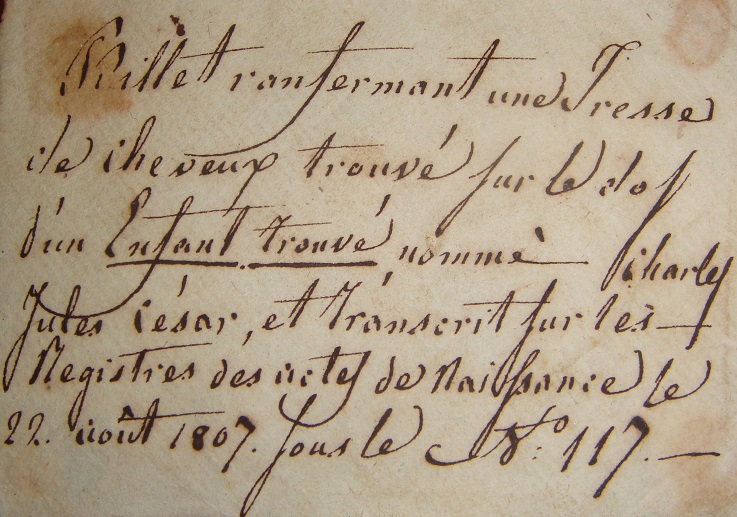 Billet ranfermant une Tresse
de cheveux trouvé sur le dos
d'un Enfant trouvé, nommé — Charles
Jules César, et transcrit sur les —
Registres des actes de Naissance le
22. août 1807. sous le N.º 117. —